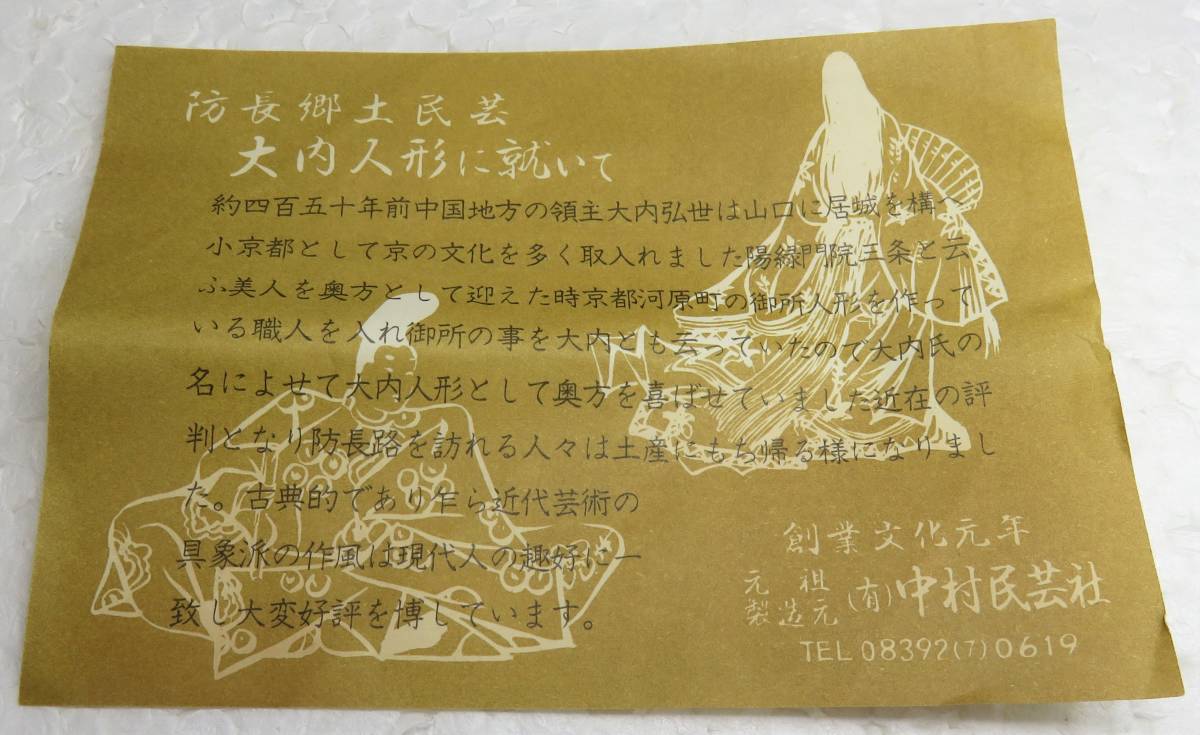 防長郷土民芸
大内人形に就いて
約四百五十年前中国地方の領主大内弘世は山口に居城を構へ
小京都として京の文化を多く取入れました陽緑門院三条と云
ふ美人を奥方として迎えた時京都河原町の御所人形を作って
いる職人を入れ御所の事を大内とも云っていたので大内氏の
名によせて大内人形として奥方を喜ばせていました近在の評
判となり防長路を訪れる人々は土産にもち帰る様になりまし
た。古典的であり乍ら近代芸術の
具象派の作風は現代人の趣好に一
致し大変好評を博しています。
創業文化元年
元祖
製造元
(有)中村民芸社
TEL 08392(7)0619